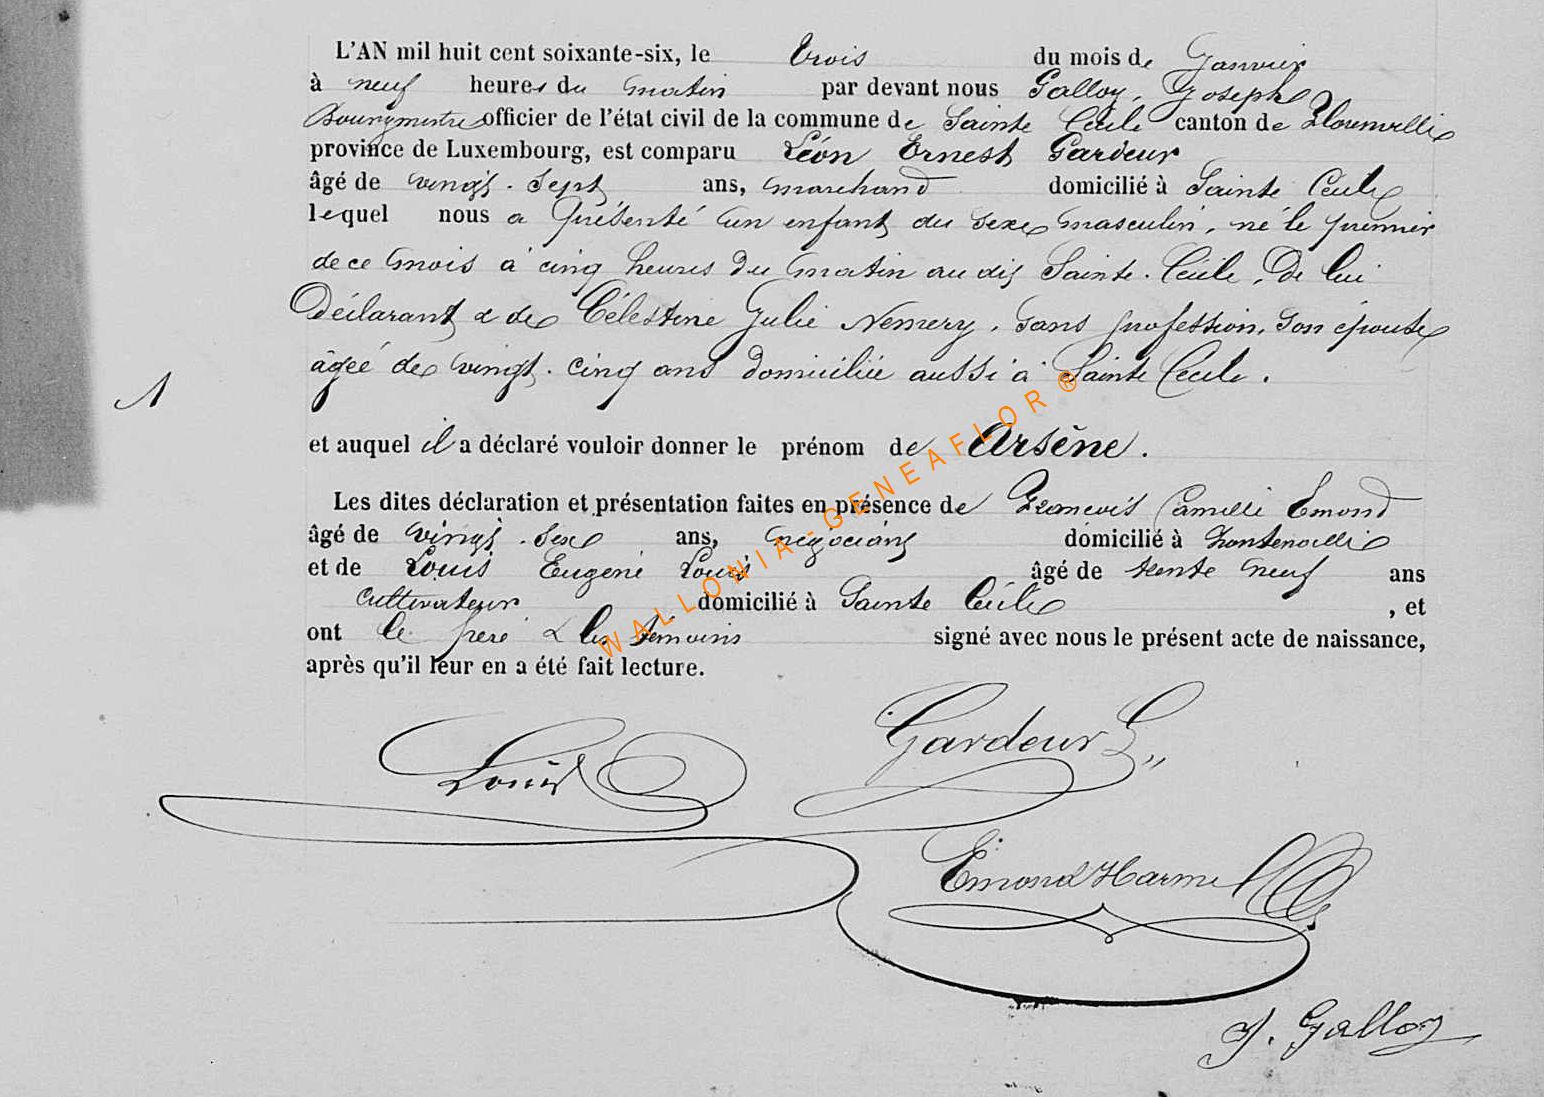 L'AN mil huit cent soixante-six, le trois du mois de Janvier
à neuf heures du matin par devant nous Galloy, Joseph
Bourgmestre officier de l'état civil de la commune de Sainte Cécile canton de Florenville
province de Luxembourg, est comparu Léon Ernest Gardeur
âgé de vingt-sept ans, marchand domicilié à Sainte Cécile
lequel nous a présenté un enfant du sexe masculin, né le premier
de ce mois à cinq heures du matin au dit Sainte-Cécile, De lui
Déclarant & de Célestine Julie Nemery, sans profession, son épouse
âgée de vingt-cinq ans domiciliée aussi à Sainte Cécile.
1
et auquel il a déclaré vouloir donner le prénom de Arsène.
Les dites déclaration et présentation faites en présence de François Camille Emond
âgé de vingt-six ans, négociant domicilié à Fontenoille
et de Louis Eugène Louis âgé de trente neuf ans
cultivateur domicilié à Sainte Cécile, et
ont le père & les témoins signé avec nous le présent acte de naissance,
après qu'il leur en a été fait lecture.
Louis Gardeur L
Emond Harmel
J. Galloy
WALLONIA-GENEAFLOR®